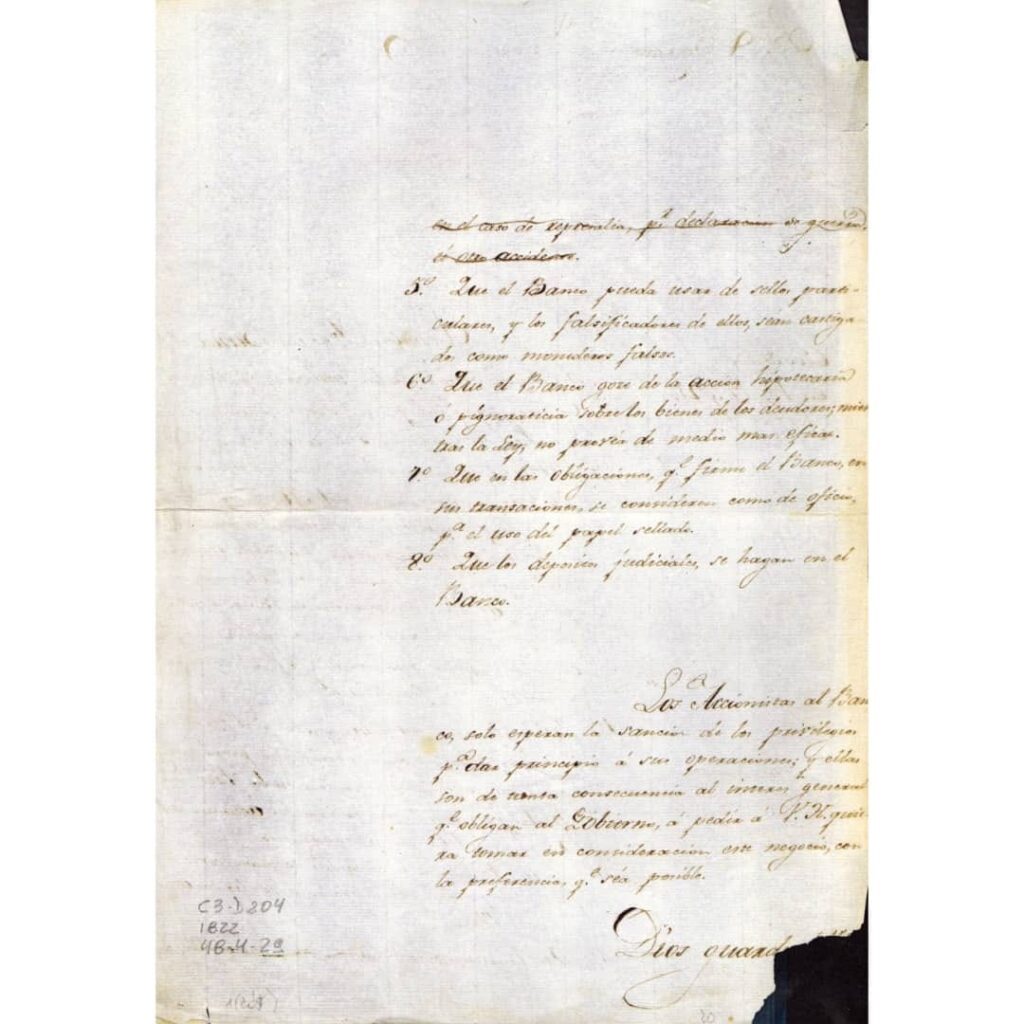 en el caso de represalia, pr. declaracion de guerra,
ú otro accidente.
5.º Que el Banco pueda usar de sellos parti-
culares, y los falsificadores de ellos, sean castiga-
dos como monederos falsos.
6.º Que el Banco gose de la accion hipotecaria
ó pignoraticia sobre los bienes de los deudores; mien
tras la Ley, no provéa de medio mas eficaz.
7.º Que en las obligaciones, q.e firme el Banco, en
sus transaciones, se consideren como de oficio,
p.a el uso del papel sellado.
8.º Que los depositos judiciales, se hagan en el
Banco.
Los Accionistas al Ban
co, solo esperan la sancion de los privilegios
p.a dar principio á sus operaciones; y ellas
son de tanta consecuencia al interes general
q.e obligan al Gobierno, á pedir á V. H. quie-
ra tomar en consideracion este negocio, con
la preferencia, q.e séa posible.
Dios guard
C3-D204
1822
48-4-29
20